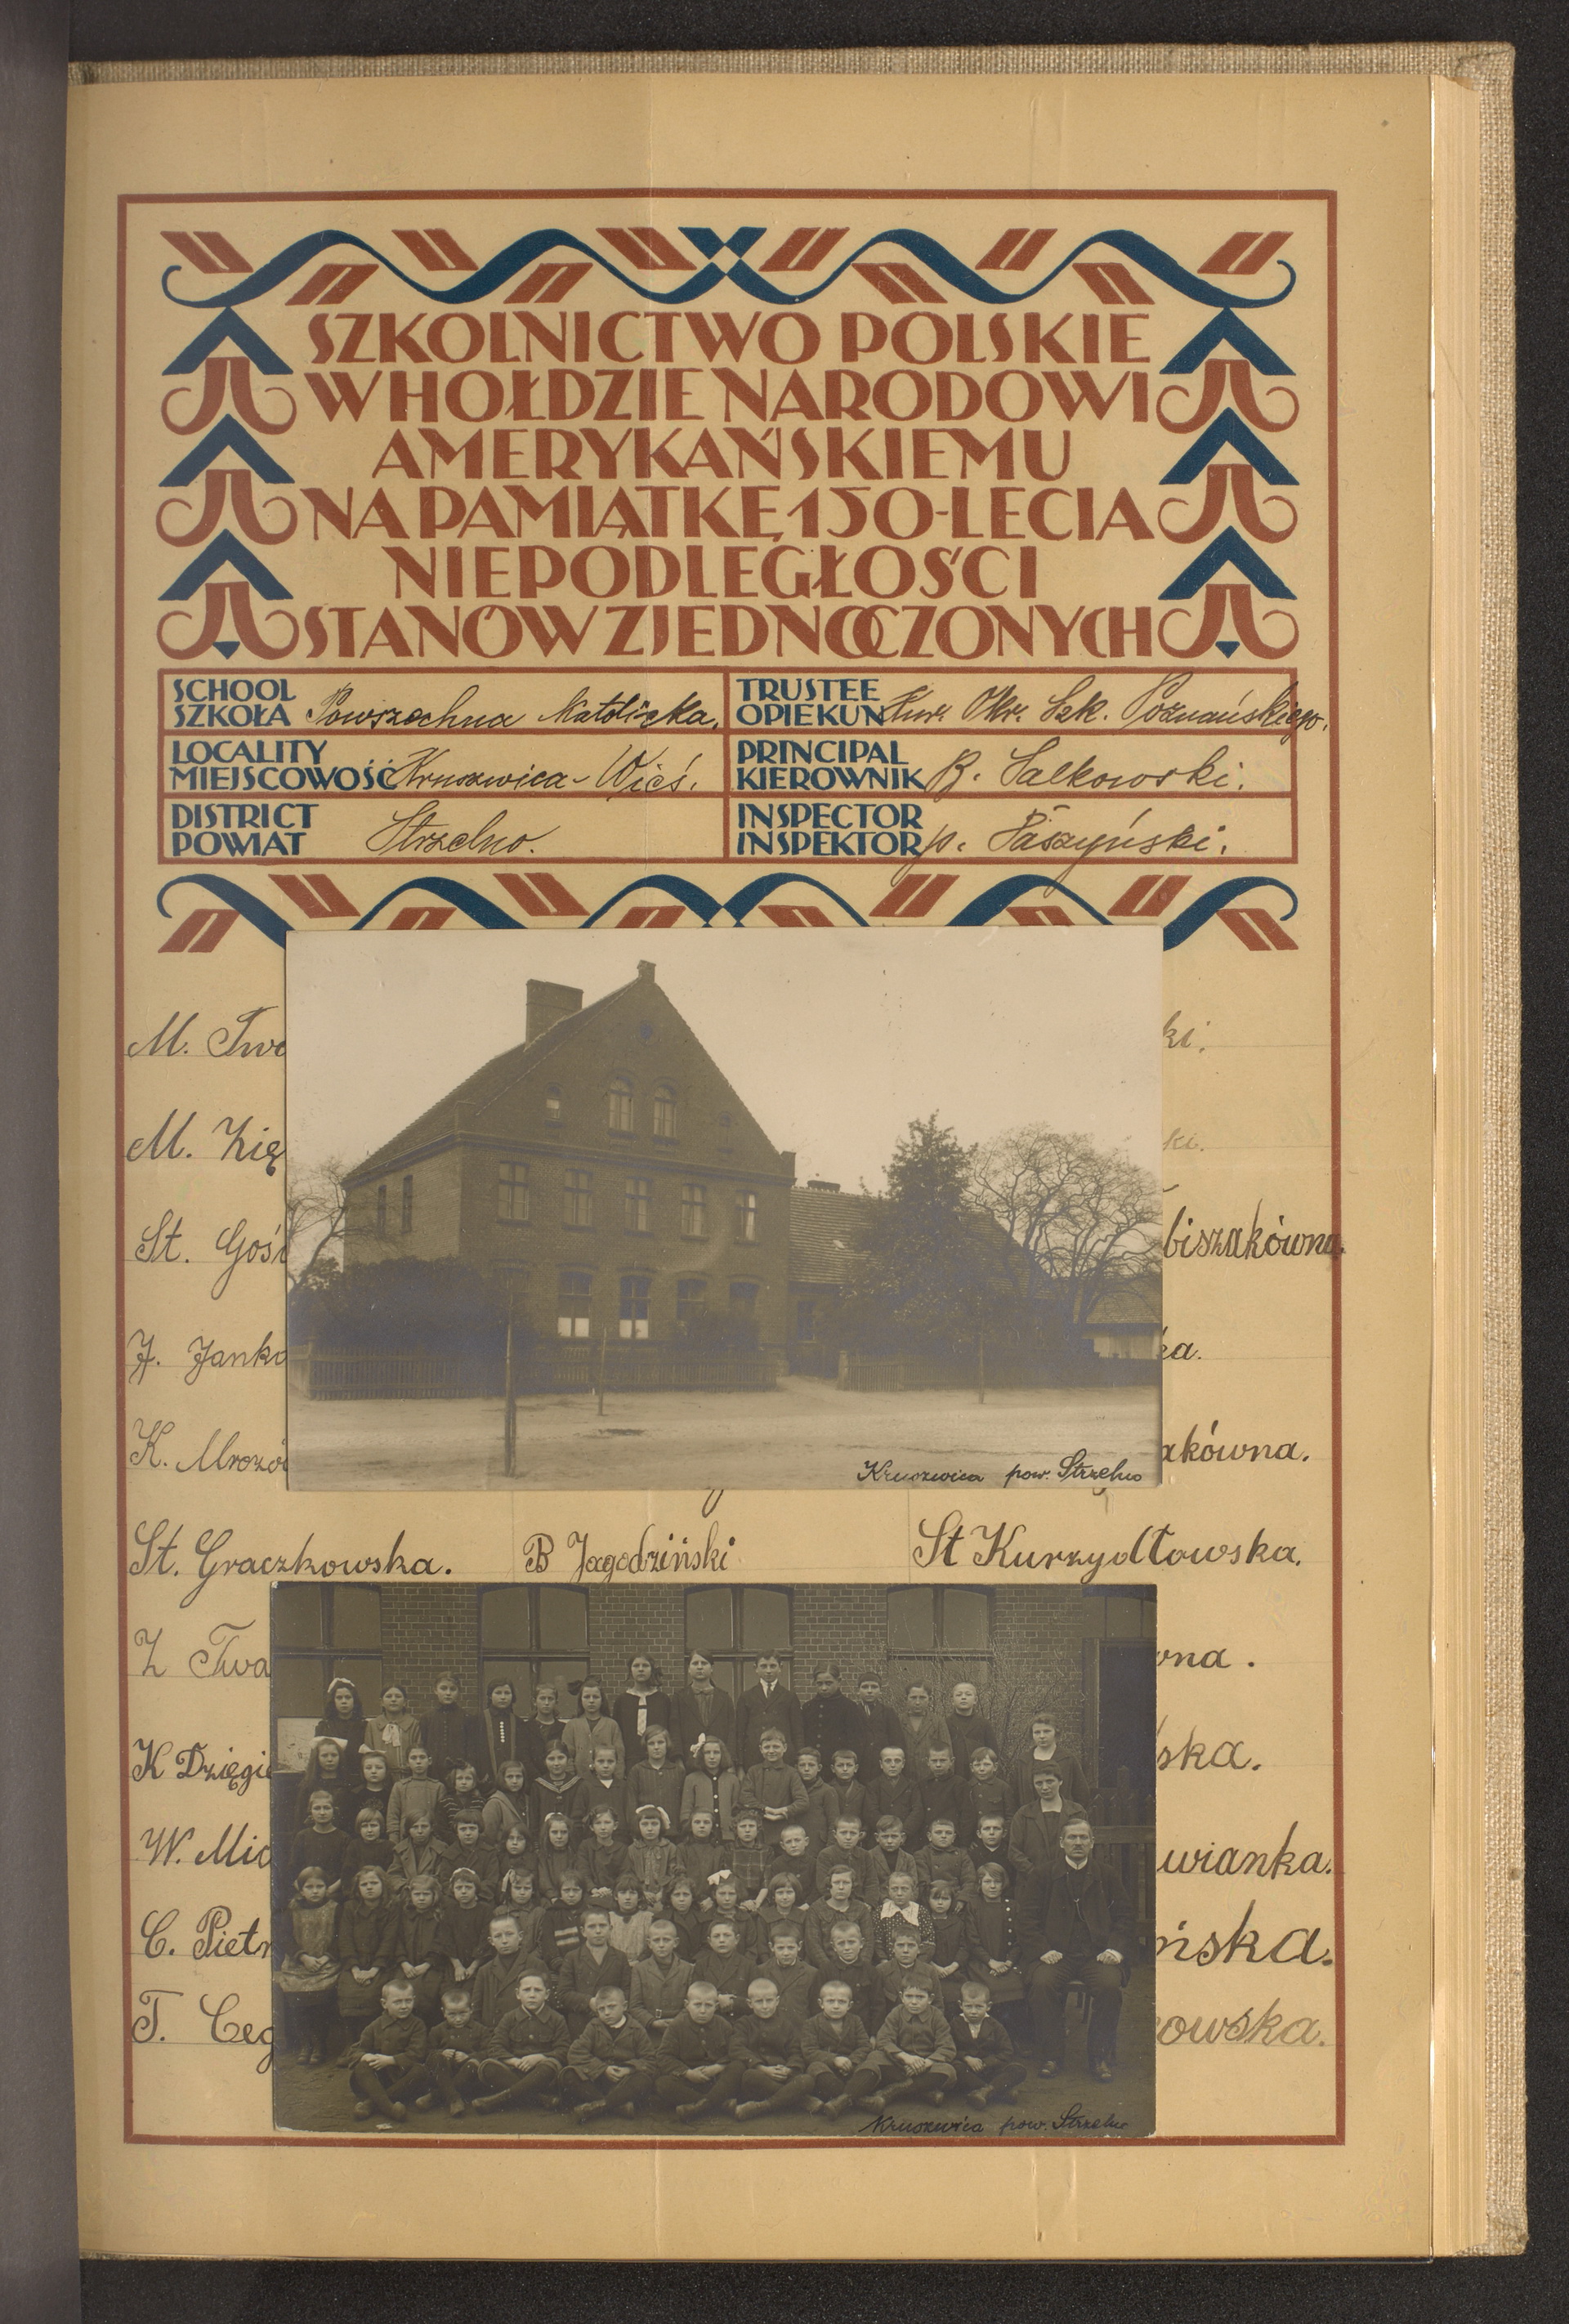 SZKOLNICTWO POLSKIE
W HOŁDZIE NARODOWI
AMERYKAŃSKIEMU
NA PAMIĄTKĘ 150-LECIA
NIEPODLEGŁOŚCI
STANÓW ZJEDNOCZONYCH
SCHOOL
SZKOŁA Powszechna Katolicka.
TRUSTEE
OPIEKUN Kur. Okr. Szk. Poznańskiego.
LOCALITY
MIEJSCOWOŚĆ Kruszwica-Wieś.
PRINCIPAL
KIEROWNIK B. Salkowski.
DISTRICT
POWIAT Strzelno.
INSPECTOR
INSPEKTOR p. Paszyński.
M. Twa ki.
M. Zię ki.
St. Goś biszakówna.
J. Janko ka.
K. Mrozi akówna.
Kruszwica pow. Strzelno
St. Graczkowska. B Jagodziński St Kurzydłowska.
Z Twa wna.
K Dzięgie ska.
W. Mic wianka.
C. Piet ńska.
T. Ceg owska.
Kruszwica pow. Strzelno